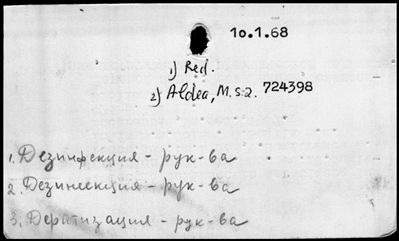 10.1.68
1) Red.
2) Aldea, M. ș.a. 724398
1. Дезинфекция - рук-ва
2. Дезинсекция - рук-ва
3. Дератизация - рук-ва